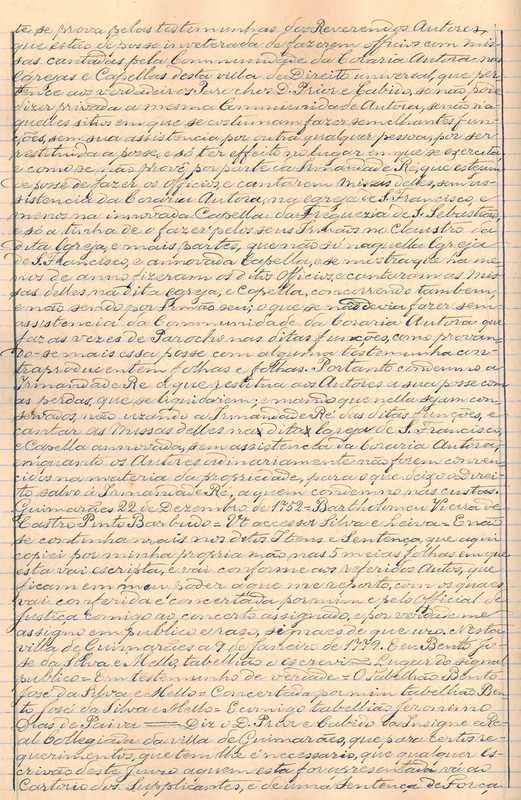 te se prova pelas testemunhas dos Reverendos Autores,
que estão de posse inveterada de fazerem officios com mis-
sas cantadas pela Communidade da Coraria Autora nas
Egrejas e Capellas desta villa de Direito universal, que per-
tence aos verdadeiros Parochos D. Prior e Cabido, se não pode
dizer privada a mesma Communidade Autora, senão n'a
quelles sitios em que se costumam fazer semelhantes fun-
ções, sem sua assistencia por outra qualquer pessoa, por ser
restituida a posse, e só ter effeito no lugar em que se exercita,
e como se não prove por parte da Irmandade Ré, que estejam
de posse de fazer os officios, e cantarem Missas delles, sem as-
sistencia da Coraria Autora, na egreja de S. Francisco, e
menos na innovada Capella da Freguezia de S. Sebastião,
e só a tinha de o fazer pelos seus Irmãos no Claustro da
dita Igreja, e mais partes, que não só naquella Igreja
de S. Francisco, e a novada Capella, e se mostra que na me-
nos de anno fizeram os ditos Officios, e cantaram as Mis-
sas delles, na dita Egreja, e Capella, concorrendo tambem,
e não sendo por Irmão seu; o que se não devia fazer sem
assistencia da Communidade da Coraria Autora que
faz as vezes de Parocho nas ditas funções, como provan-
do-se mais essa posse com alguma testemunha con-
traproducentem folhas e folhas. Portanto condemno a
Irmandade Ré a que restitua aos Autores a sua posse com
as perdas, que se liquidarem; e mando que nella sejam con-
servados, não uzando a Irmandade Ré das ditas funções, e
cantar as Missas delles na dita Igreja de S. Francisco,
e Capella annovada, sem assistencia da Coraria Autora,
emquanto os Autores ordinariamente não forem conven-
cidos na materia da propriedade, para o que deixo o Direi-
to salvo á Irmandade Ré, a quem condemno nas custas.
Guimarães 22 de Dezembro de 1752 = Bartholomeu Vieira de
Castro Pinto Barbudo = Vt accessor Silva e Leiva = E não
se continha mais nos ditos Itens e Sentença, que aqui
copiei por minha propria mão, nas 5 meias folhas em que
esta vai escripta, e vai conforme aos referidos Autos, que
ficam em meu poder a que me reporto, com os quaes
vai conferida e concertada por mim e pelo Official de
Justiça comigo ao concerto assignado, e por verdade me
assigno em publico e raso, signaes de que uso. Nesta
villa de Guimarães a 9 de Janeiro de Eu Bento Jo-
sé da Silva e Mello, tabellião o escrevi = Lugar do signal
publico = Em testemunho de verdade = O tabellião Bento
José da Silva e Mello = Concertada por mim tabellião Ben-
to José da Silva e Mello = E comigo tabellião Jeronimo
Dias de Paiva = Diz o D. Prior e Cabido da Insigne e Re-
al Collegiada da villa de Guimarães, que para certos re-
querimentos, que tem lhe é necessario, que qualquer es-
crivão deste Juizo a quem esta for apresentada vá ao
Cartorio dos Supplicantes, e de uma Sentença de Força